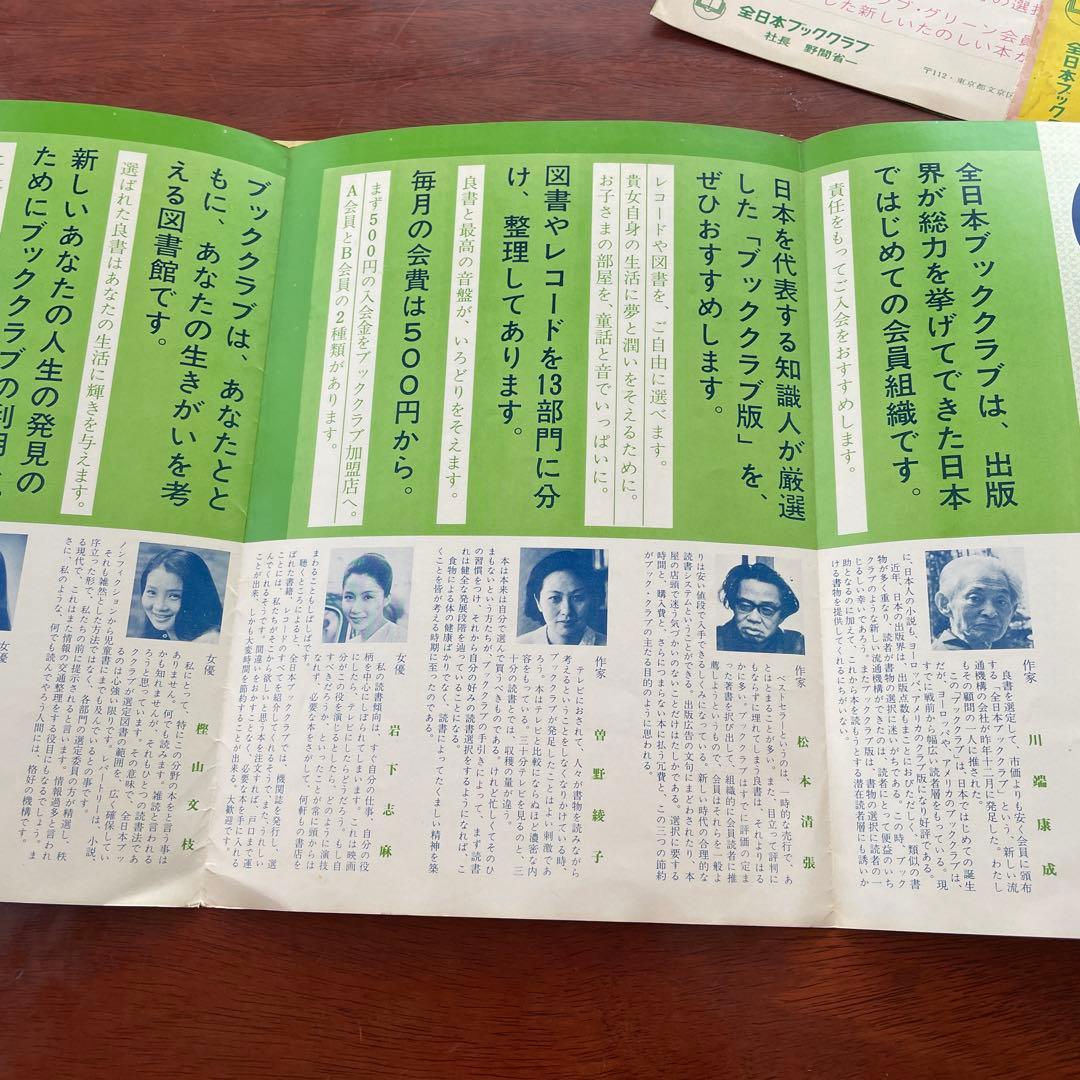 全日本ブッククラブ
社長 野間省一
〒112・東京都文京区
全日本ブッククラブは、出版
界が総力を挙げてできた日本
ではじめての会員組織です。
責任をもってご入会をおすすめします。
日本を代表する知識人が厳選
した「ブッククラブ版」を、
ぜひおすすめします。
レコードや図書を、ご自由に選べます。
貴女自身の生活に夢と潤いをそえるために。
お子さまの部屋を、童話と音でいっぱいに。
図書やレコードを13部門に分
け、整理してあります。
良書と最高の音盤が、いろどりをそえます。
毎月の会費は500円から。
まず500円の入会金をブッククラブ加盟店へ。
A会員とB会員の2種類があります。
ブッククラブは、あなたとと
もに、あなたの生きがいを考
える図書館です。
選ばれた良書はあなたの生活に輝きを与えます。
新しいあなたの人生の発見の
ためにブッククラブの利用
作家 川端康成
良書を選定して、市価よりも安く会員に頒布
する「全日本ブッククラブ」という、新しい流
通機構の会社が昨年十二月に発足した。わたし
もその顧問の一人に推された。
このブッククラブは、日本ではじめての誕生
だが、ヨーロッパや、アメリカのブッククラブは、
すでに戦前から幅広い読者層をもっている。現
に、日本人の小説も、ヨーロッパ、アメリカのクラブ版になり好評である。
近年、日本の出版界は、出版点数もまことにおびただしく、類似の書
物が多く重なり、読者が書物の選択に迷いがちである。この時、ブック
クラブのような新しい流通機構ができたのは、読者にとって便益のいち
じるしい幸いであろう。またブッククラブ版は、書物の選択に読者の一
助となるのに加えて、これから本を読もうとする潜在読者層にも誘いか
ける書物を提供してくれるにちがいない。
作家 松本清張
ベストセラーというのは、一時的な先行で、あ
とはとまることが多い。また、目立って評判に
もならずに埋れてしまう良書は、それよりはる
かに多い。ブッククラブはすでに評価の定ま
った著書を択び出して、組織的に会員読者に推
薦しようというもので、会員はそれらを一般よ
りは安い値段で入手できるしくみになっている。新しい時代の合理的な
読書システムということができる。出版広告の文句にまどわされたり、本
屋の店頭で迷う気づかいのないことだけはたしかである。選択に要する
時間と、購入費と、さらにつまらない本に払う冗費と、この三つの節約
がブック・クラブの主たる目的のように思われる。
作家 曽野綾子
テレビにおされて、人々が書物を読みながら
考えるということをしなくなりかけている時、
ブッククラブが発足したことはよい刺激であ
ろう。本はテレビと比較にならぬほど濃密な内
容をもっている。三十分テレビを見るのと、三
十分の読書とでは、収穫の量が違う。
本は本来は自分で選んで買うべきものである。けれど忙しくてそのひ
まもないという方たちが、ブッククラブの手引きによって、まず読書
の習慣をつけ、それから自分の好みの読書選択をするようになれば、こ
れは健全な発展段階を辿っていることになる。
食物による体の健康ばかりでなく、読書によってたくましい精神を築
くことを皆が考える時期に至ったのである。
女優 岩下志麻
私の読書傾向は、すぐ自分の仕事、自分の役
柄を中心にしぼられてしまいます。これは映画
にしたら、テレビにしたらどうだろう。もし自
分がこの役を演じるとしたら、どのように演技
すべきだろうか、といったことが常に頭からは
なれず、必要な本をさがして、何軒もの書店を
まわることもしばしばです。
聴くところによると、全日本ブッククラブでは、機関誌を発行し、選
ばれた書籍、レコードのすべてを紹介してくれるそうです。また、うれしい
ことには、私たちがそこから欲しいと思う本を注文すれば、戸口まで運
んでくれるそうです。間違いをおかすことなく、必要な本を手に入れる
ことが出来、しかも大変時間を節約することが出来る。大歓迎です。
女優 樫山文枝
私にとって、特にこの分野の本をと言う事は
ありません。何でも読みます。雑読と言われる
かも知れませんが、それもひとつの読書法であ
ろうと思っています。その意味で、全日本ブッ
ククラブが選定図書の範囲を、広く確保してい
るのは心強い限りです。レパートリーは、小説、
ノンフィクションから児童書にまでも及んでいるとの事です。
それも雑然とした方法ではなく、各部門の選定委員の方が精選し、秩
序立った形で、私たちの前に提示されると言います。情報過多と言われ
る現代で、これはまた情報の交通整理をする役目にもなるでしょう。ま
さに、私のような、何でも読んでやろう人間には、格好の機構です。
女優